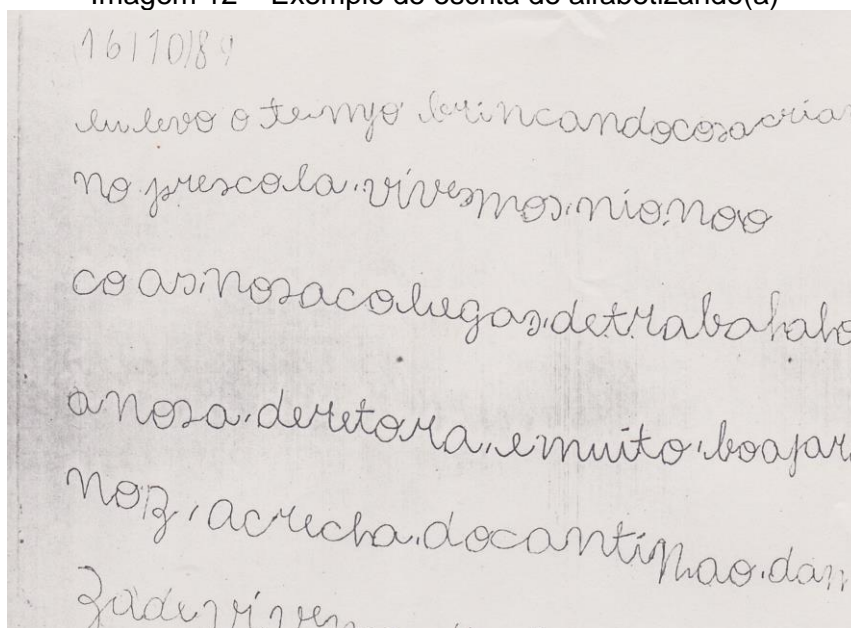 Imagem 12 – Exemplo de escrita de alfabetizando(a)
16/10/89
eu levo o tempo brincandocosacrian
no prescola.vivemos.
co as.nosacolegas.detrabahalho
anosa.deretora.emuito.boapara
noz, acrecha.docantinhao.dan
zadeviven